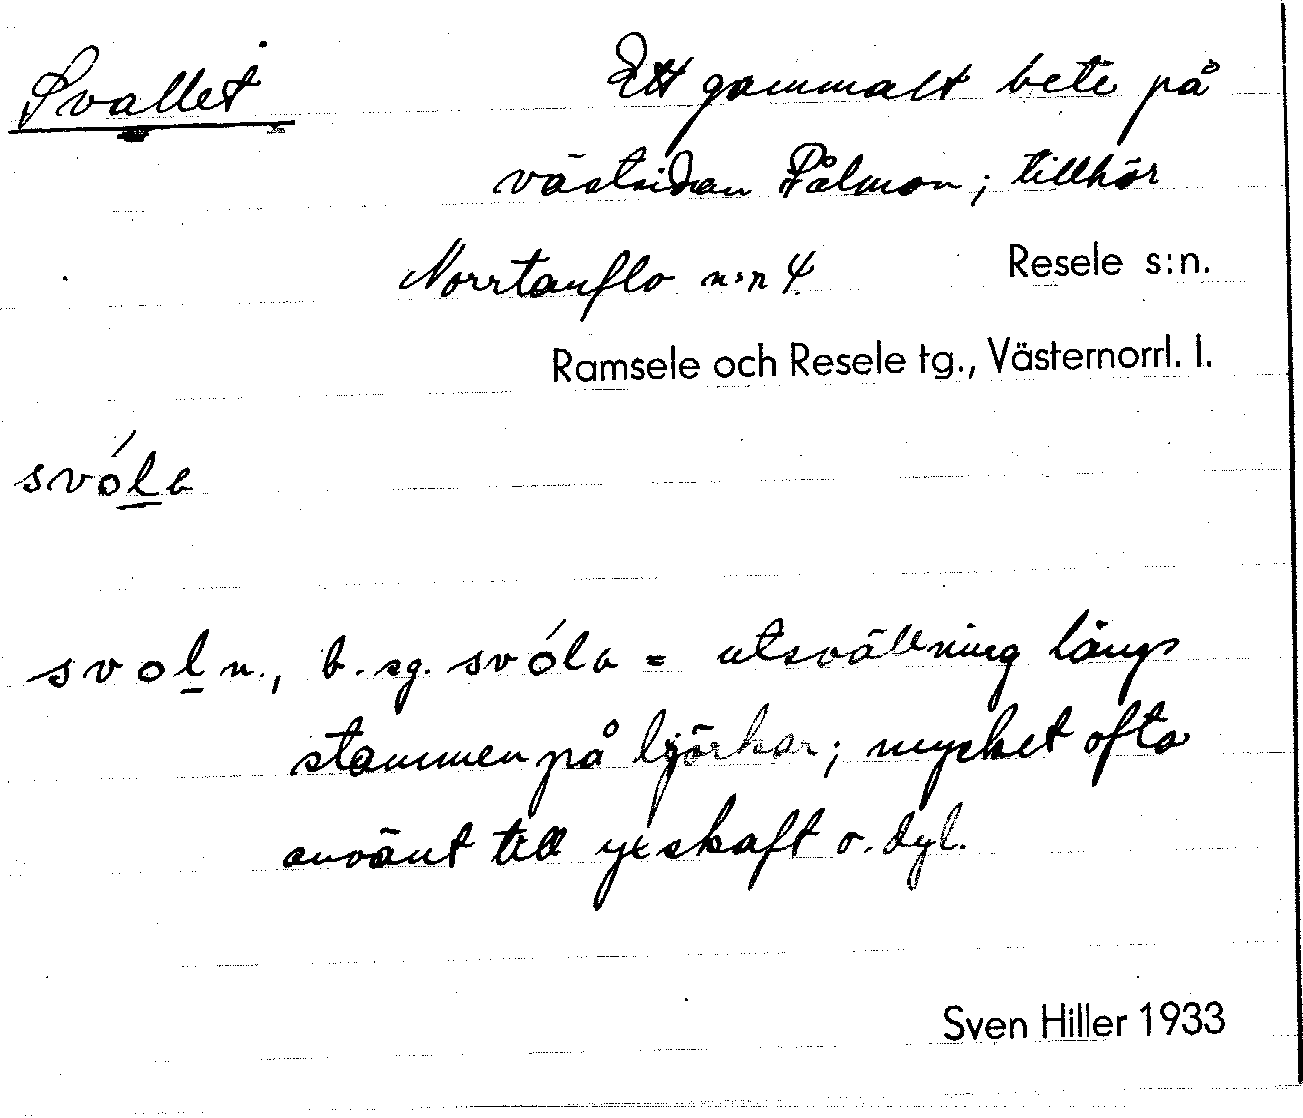 Svallet
Ett gammalt bete på
västsidan Pålmon; tillhör
Norrtanflo n:r 4 Resele s:n.
Ramsele och Resele tg., Västernorrl. l.
svóla
svol n., b. sg. svóla = utsvällning längs
stammen på björkar; mycket ofta
använt till yxskaft o. dyl.
Sven Hiller 1933